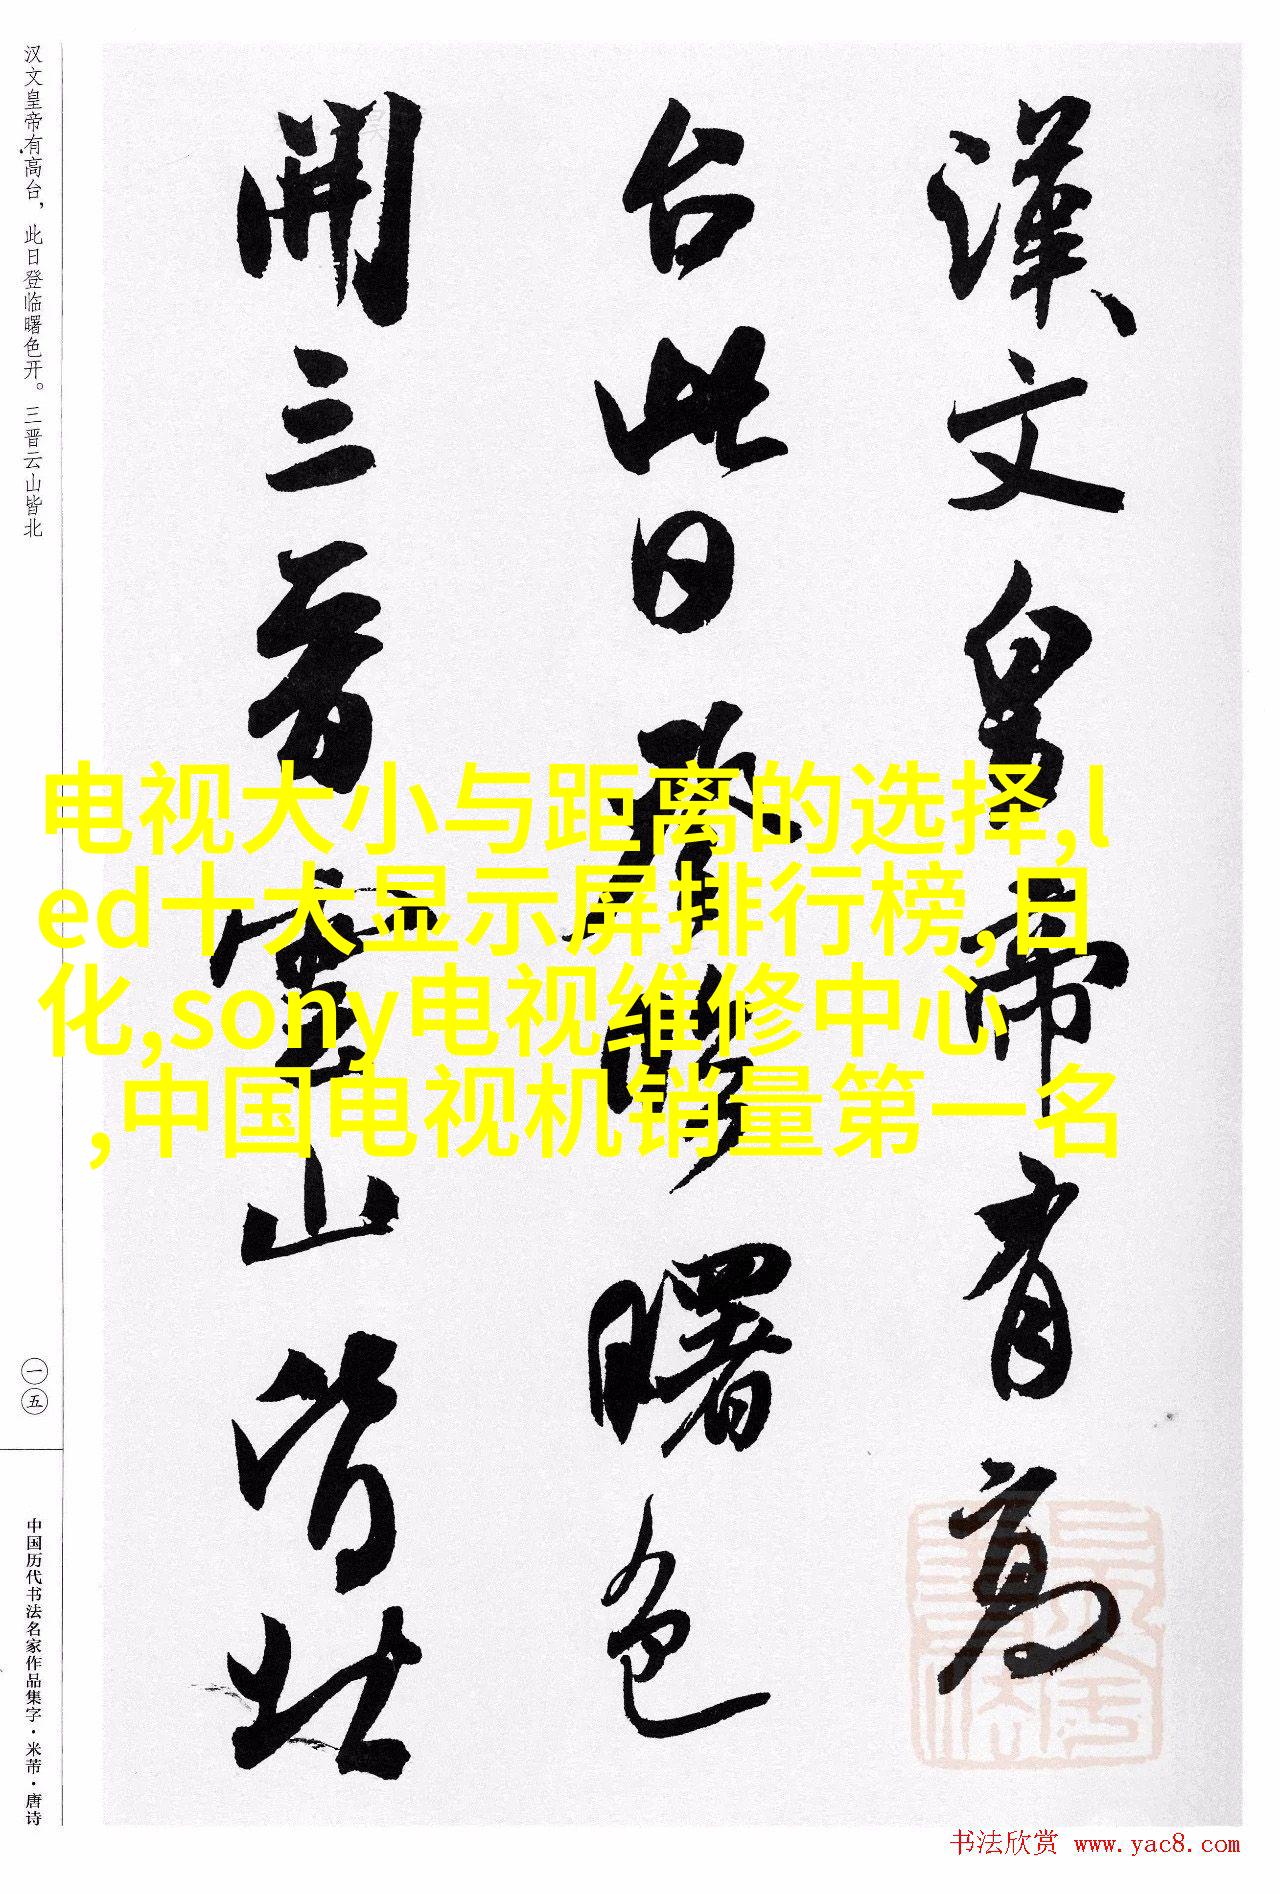 漢文皇帝有高
台此日登臨曙色
開三晉雲山皆北
汉文皇帝有高台，此日登临曙色开。三晋云山皆北
一五
中国历代书法名家作品集字·米芾·唐诗
电视大小与距离的选择,l
ed十大显示屏排行榜,日
化,sony电视维修中心
,中国电视机销量第一名
书法欣赏 www.yac8.com